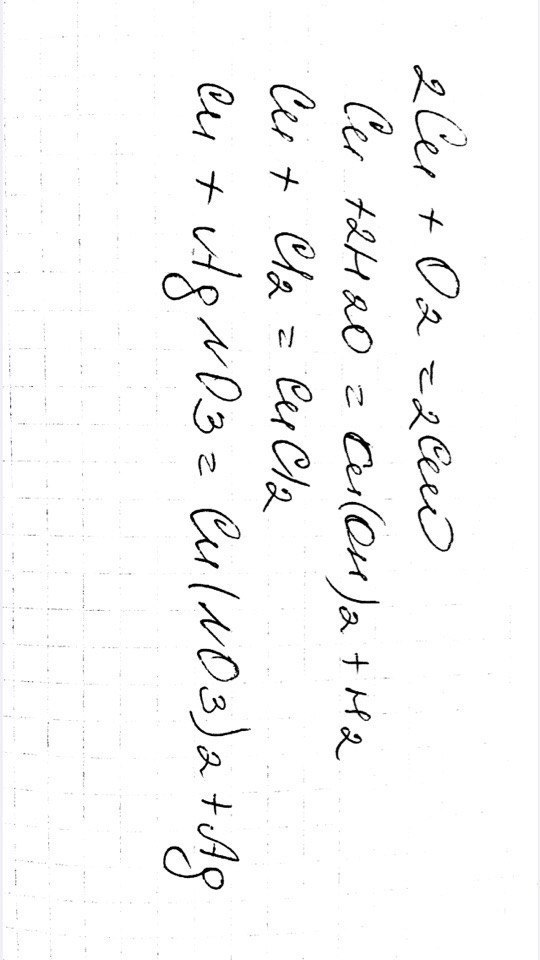 2Cu + O2 = 2CuO
Cu + 2H2O = Cu(OH)2 + H2
Cu + Cl2 = CuCl2
Cu + AgNO3 = Cu(NO3)2 + Ag